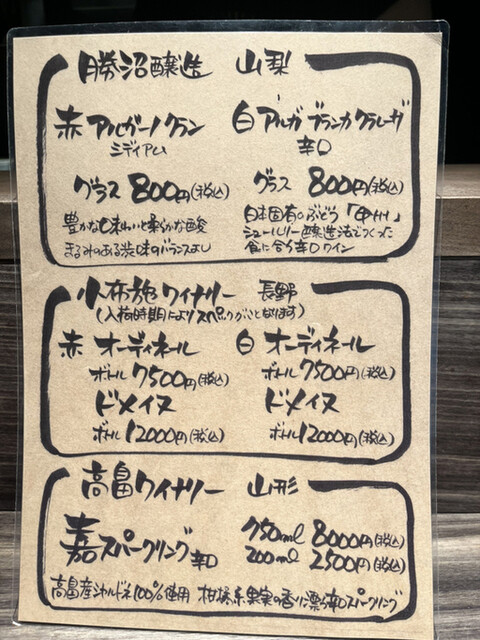 勝沼醸造 山梨
赤 アルガーノ クラン
ミディアム
グラス 800円(税込)
豊かな味わいと柔らかな酸
まるみのある渋味のバランスよし
白 アルガ ブランカ クラレーザ
辛口
グラス 800円(税込)
日本固有のぶどう「甲州」
シュール・リー醸造法でつくった
食に合う辛口ワイン
小布施ワイナリー 長野
(入荷時期によりスペックがことなります)
赤 オーディネール
ボトル 7500円(税込)
ドメイヌ
ボトル 12000円(税込)
白 オーディネール
ボトル 7500円(税込)
ドメイヌ
ボトル 12000円(税込)
高畠ワイナリー 山形
嘉スパークリング 辛口
750ml 8000円(税込)
200ml 2500円(税込)
高畠産シャルドネ100%使用 柑橘系果実の香り漂う辛口スパークリング